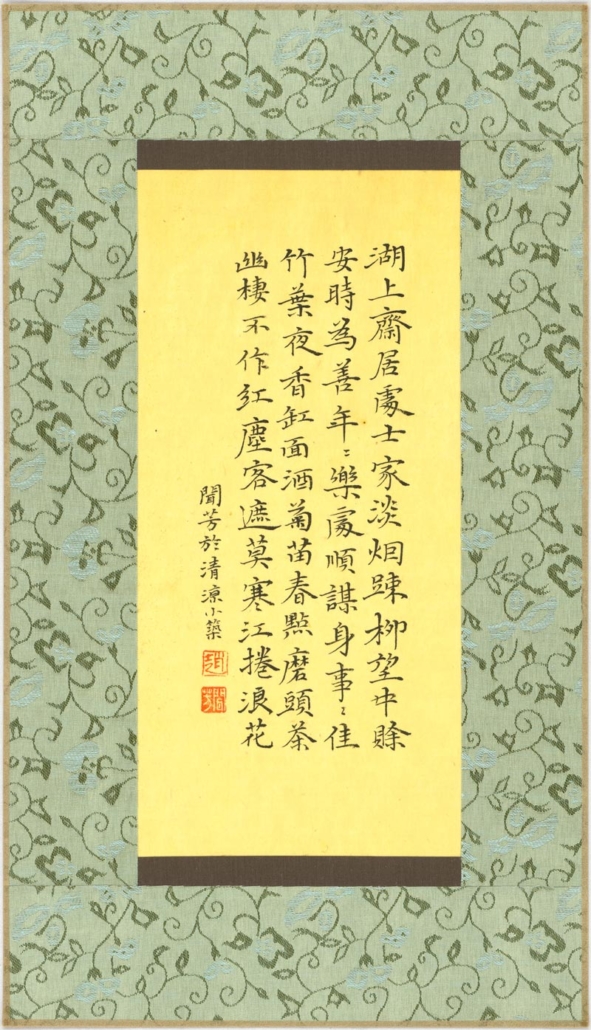 湖上齋居處士家淡烟踈柳望中賒
安時為善年〻樂處順謀身事〻佳
竹葉夜香缸面酒菊苗春點磨頭茶
幽棲不作紅塵客遮莫寒江捲浪花
聞芳於清涼小築
聞芳